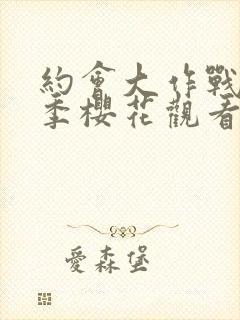 約會大作戰
季櫻花觀看
愛森堡